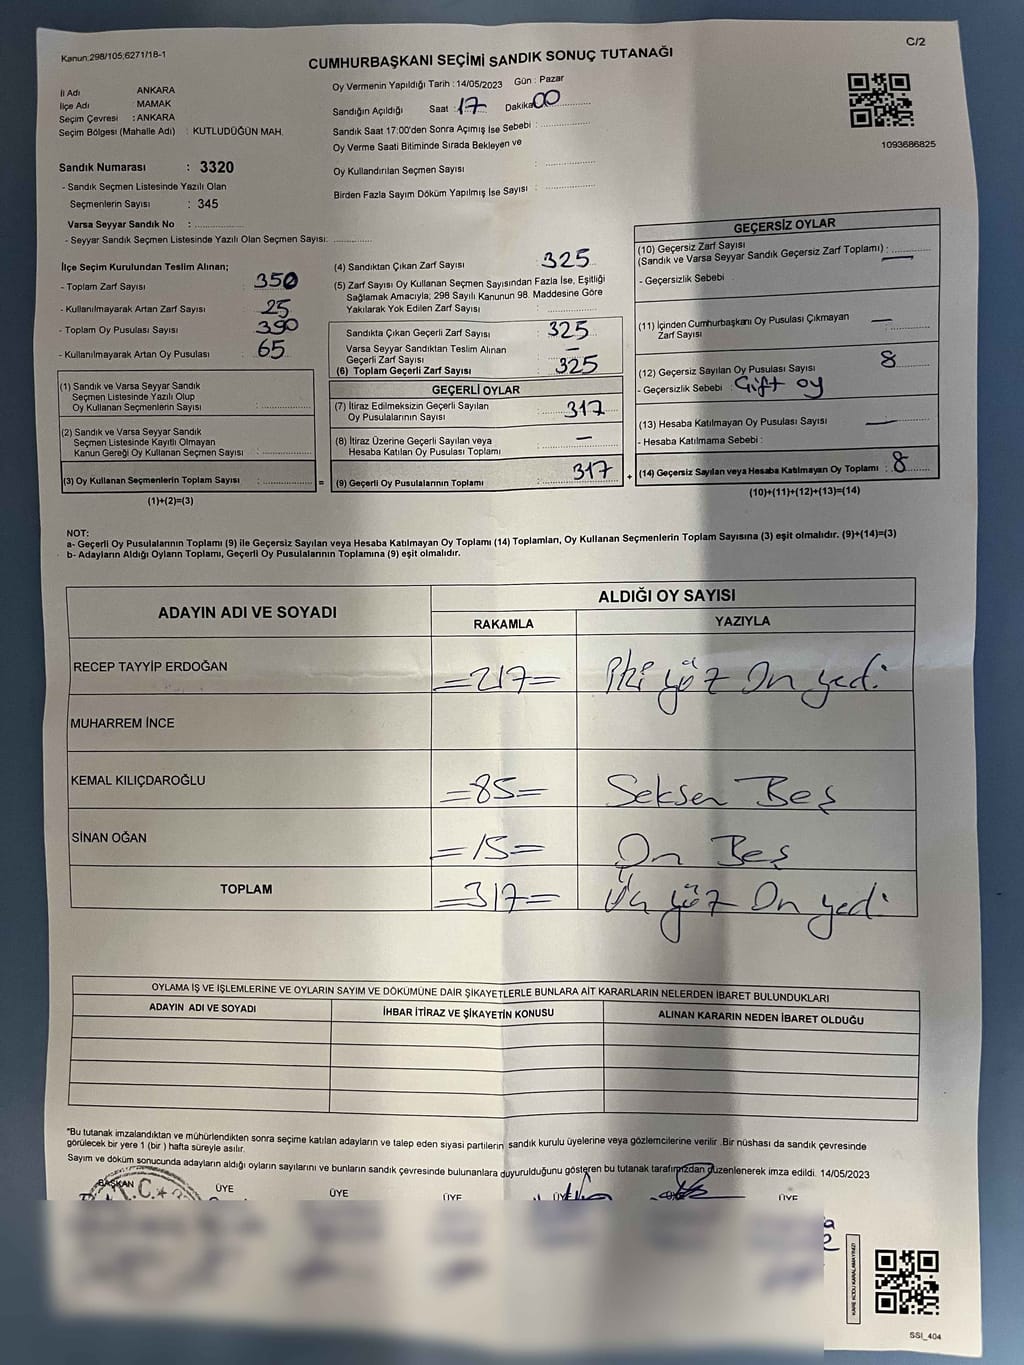 Kanun:298/105;6271/18-1
C/2
CUMHURBAŞKANI SEÇİMİ SANDIK SONUÇ TUTANAĞI
İl Adı ANKARA
İlçe Adı MAMAK
Seçim Çevresi : ANKARA
Seçim Bölgesi (Mahalle Adı) : KUTLUDÜĞÜN MAH.
Oy Vermenin Yapıldığı Tarih : 14/05/2023 Gün : Pazar
Sandığın Açıldığı Saat : 17 Dakika 00
Sandık Saat 17:00'den Sonra Açımış İse Sebebi :
Oy Verme Saati Bitiminde Sırada Bekleyen ve
Oy Kullandırılan Seçmen Sayısı :
Birden Fazla Sayım Döküm Yapılmış İse Sayısı :
1093686825
Sandık Numarası : 3320
- Sandık Seçmen Listesinde Yazılı Olan
Seçmenlerin Sayısı : 345
Varsa Seyyar Sandık No :
- Seyyar Sandık Seçmen Listesinde Yazılı Olan Seçmen Sayısı:
İlçe Seçim Kurulundan Teslim Alınan;
- Toplam Zarf Sayısı 350
- Kullanılmayarak Artan Zarf Sayısı 25
- Toplam Oy Pusulası Sayısı 390
- Kullanılmayarak Artan Oy Pusulası 65
(1) Sandık ve Varsa Seyyar Sandık
Seçmen Listesinde Yazılı Olup
Oy Kullanan Seçmenlerin Sayısı :
(2) Sandık ve Varsa Seyyar Sandık
Seçmen Listesinde Kayıtlı Olmayan
Kanun Gereği Oy Kullanan Seçmen Sayısı :
(3) Oy Kullanan Seçmenlerin Toplam Sayısı : =
(1)+(2)=(3)
(4) Sandıktan Çıkan Zarf Sayısı : 325
(5) Zarf Sayısı Oy Kullanan Seçmen Sayısından Fazla İse, Eşitliği
Sağlamak Amacıyla; 298 Sayılı Kanunun 98. Maddesine Göre
Yakılarak Yok Edilen Zarf Sayısı :
Sandıkta Çıkan Geçerli Zarf Sayısı : 325
Varsa Seyyar Sandıktan Teslim Alınan
Geçerli Zarf Sayısı : —
(6) Toplam Geçerli Zarf Sayısı : 325
GEÇERLİ OYLAR
(7) İtiraz Edilmeksizin Geçerli Sayılan
Oy Pusulalarının Sayısı : 317
(8) İtiraz Üzerine Geçerli Sayılan veya
Hesaba Katılan Oy Pusulası Toplamı : —
(9) Geçerli Oy Pusulalarının Toplamı : 317 +
GEÇERSİZ OYLAR
(10) Geçersiz Zarf Sayısı
(Sandık ve Varsa Seyyar Sandık Geçersiz Zarf Toplamı) : —
- Geçersizlik Sebebi :
(11) İçinden Cumhurbaşkanı Oy Pusulası Çıkmayan
Zarf Sayısı : —
(12) Geçersiz Sayılan Oy Pusulası Sayısı : 8
- Geçersizlik Sebebi : Çift oy
(13) Hesaba Katılmayan Oy Pusulası Sayısı : —
- Hesaba Katılmama Sebebi :
(14) Geçersiz Sayılan veya Hesaba Katılmayan Oy Toplamı : 8
(10)+(11)+(12)+(13)=(14)
NOT:
a- Geçerli Oy Pusulalarının Toplamı (9) ile Geçersiz Sayılan veya Hesaba Katılmayan Oy Toplamı (14) Toplamları, Oy Kullanan Seçmenlerin Toplam Sayısına (3) eşit olmalıdır. (9)+(14)=(3)
b- Adayların Aldığı Oyların Toplamı, Geçerli Oy Pusulalarının Toplamına (9) eşit olmalıdır.
ADAYIN ADI VE SOYADI
ALDIĞI OY SAYISI
RAKAMLA YAZIYLA
RECEP TAYYİP ERDOĞAN =217= İki yüz On yedi
MUHARREM İNCE
KEMAL KILIÇDAROĞLU =85= Seksen Beş
SİNAN OĞAN =15= On Beş
TOPLAM =317= Üç yüz On yedi
OYLAMA İŞ VE İŞLEMLERİNE VE OYLARIN SAYIM VE DÖKÜMÜNE DAİR ŞİKAYETLERLE BUNLARA AİT KARARLARIN NELERDEN İBARET BULUNDUKLARI
ADAYIN ADI VE SOYADI İHBAR İTİRAZ VE ŞİKAYETİN KONUSU ALINAN KARARIN NEDEN İBARET OLDUĞU
"Bu tutanak imzalandıktan ve mühürlendikten sonra seçime katılan adayların ve talep eden siyasi partilerin sandık kurulu üyelerine veya gözlemcilerine verilir .Bir nüshası da sandık çevresinde
görülecek bir yere 1 (bir ) hafta süreyle asılır.
Sayım ve döküm sonucunda adayların aldığı oyların sayılarını ve bunların sandık çevresinde bulunanlara duyurulduğunu gösteren bu tutanak tarafımızdan düzenlenerek imza edildi. 14/05/2023
BAŞKAN ÜYE ÜYE ÜYE ÜYE ÜYE
T.C.
KARE KODU KARALAMAYINIZ!
SSI_404